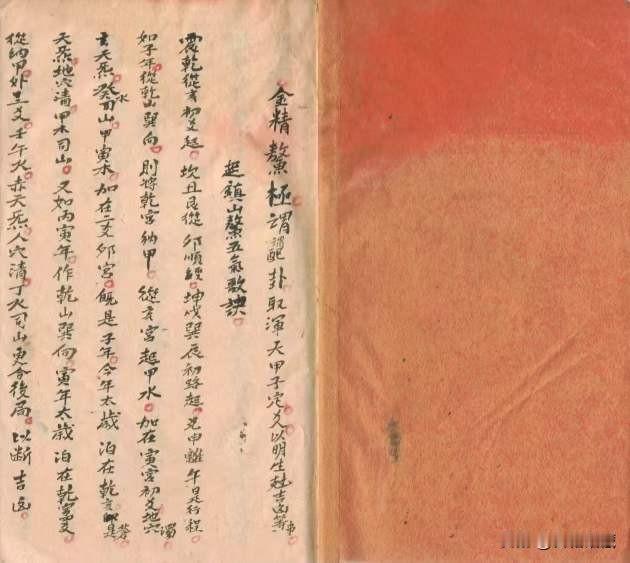 金精鰲極謂配卦取渾天甲子定爻以明生尅吉凶等事
起鎮山鰲五氣歌訣
震乾從亥初爻起坎丑艮從卯順經坤戌巽辰初路起兌申離午是行程
如子年從乾山巽向則將乾宮納甲從亥宮起甲水加在寅宮初爻地穴濁
玄天炁癸水司山甲寅木加在二爻卯宮既是子年今年太歲泊在乾亥卯是蒼
天炁地穴清甲木司山又如丙寅年作乾山巽向寅年太歲泊在乾宮
從納甲外三爻壬午火赤天炁人穴清丁火司山更合後局以斷吉凶